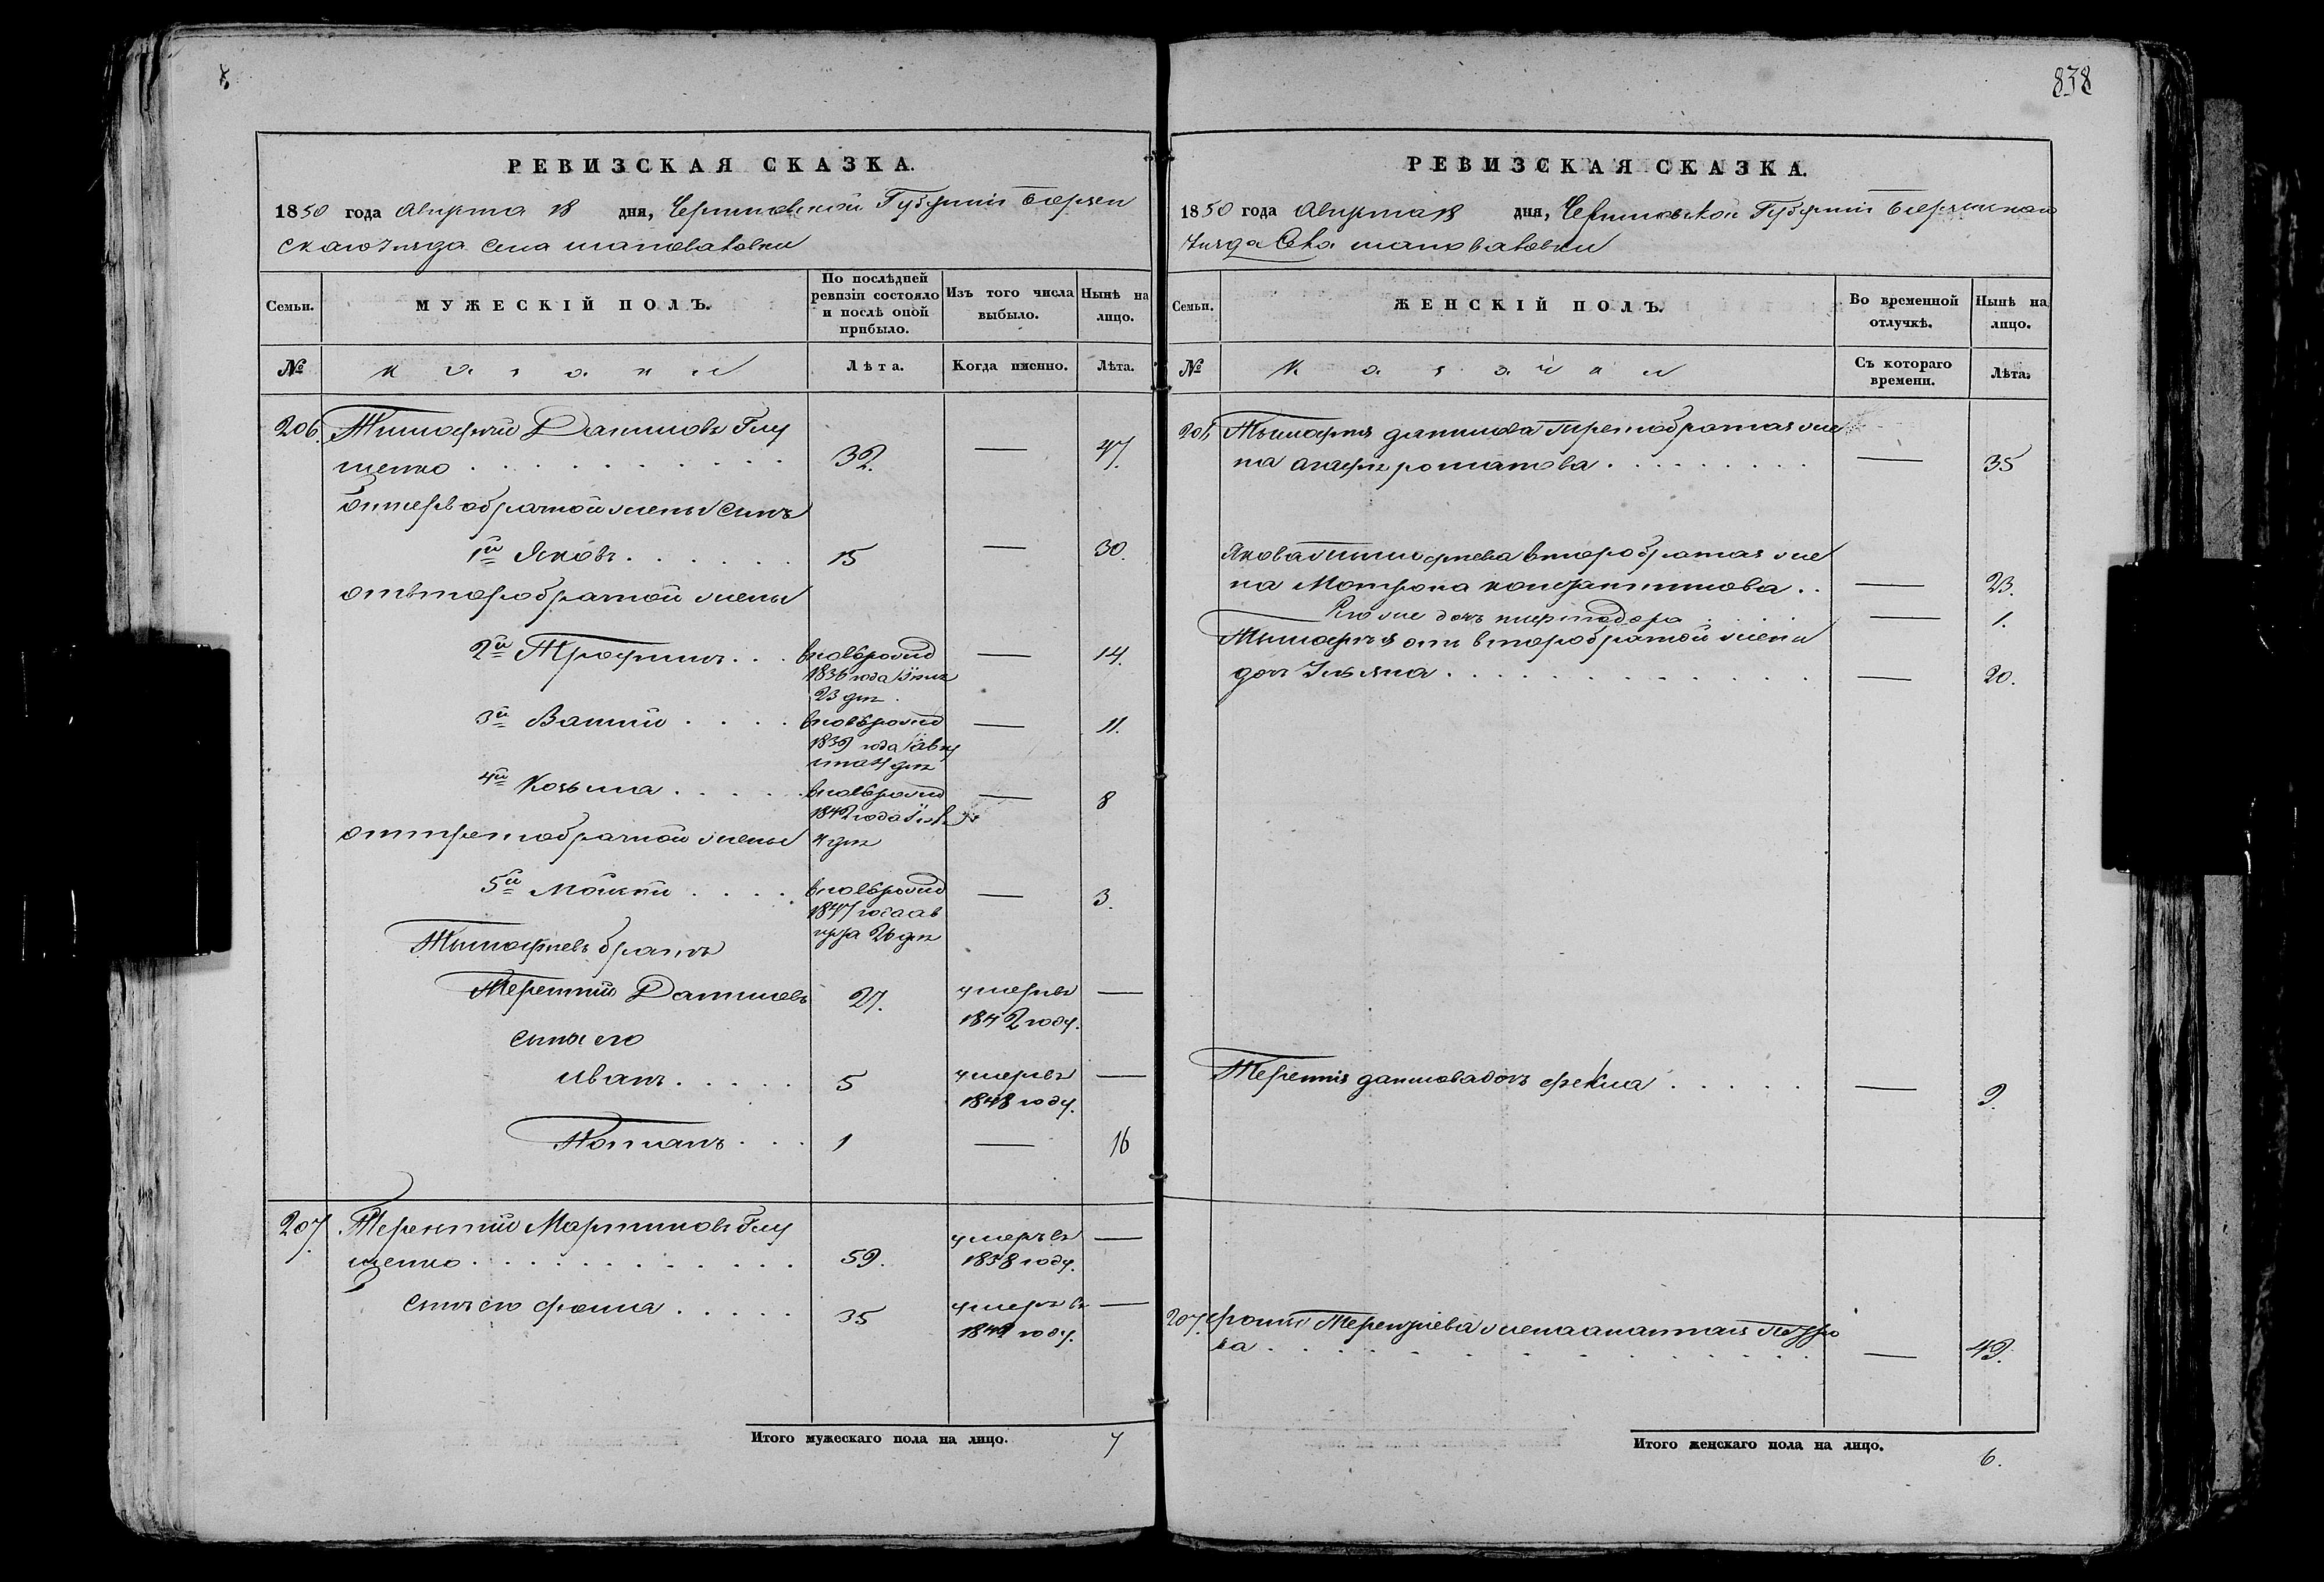 838
РЕВИЗСКАЯ СКАЗКА.
1850 года Августа 18 дня, Черниговской Губернии Борзен
скаго уезда села Шаповаловки
Семьи.
МУЖЕСКІЙ ПОЛЪ.
По послѣдней ревизіи состояло и послѣ оной прибыло.
Изъ того числа выбыло.
Нынѣ на лицо.
№
казаки
Лѣта.
Когда именно.
Лѣта.
206. Тимофей Данилов Глу
щенко 32. — 47.
от первобрачной жены сынъ
1й Яковъ 15 — 30.
от второбрачной жены
2й Трофимъ вновь рожд — 14.
1836 года
23 дня
3й Василий вновь рожд — 11.
1839 года авгу
ста 4 дня
4й Козьма вновь рожд — 8
1842 года
от третобрачной жены 4 дня
5й Моисей вновь рожд — 3.
1847 года ав
густа 26 дня
Тимофеев братъ
Терентий Даниловъ 27. умеръ в —
1842 году.
сыны его
Иванъ 5 умеръ в —
1848 году.
Потапъ 1 — 16
207. Терентий Мартиновъ Глу
щенко 59. умеръ в —
1838 году.
сынъ его Фома 35 умеръ в —
1849 году.
Итого мужескаго пола на лицо. 7
РЕВИЗСКАЯ СКАЗКА.
1850 года Августа 18 дня, Черниговской Губернии Борзенскаго
уезда села Шаповаловки
Семьи.
ЖЕНСКІЙ ПОЛЪ.
Во временной отлучкѣ.
Нынѣ на лицо.
№
казачки
Съ котораго времени.
Лѣта.
206 Тимофея Данилова третобрачная же
на Агафия Романова — 35
Якова Тимофеева второбрачная же
на Мотрона Константинова — 23.
Его же дочь — 1.
Тимофея от второбрачной жены
дочь Ульяна — 20.
Терентия Данилова дочь Фекла — 9.
207. Фомы Терентиева жена Анастасия Петро
ва — 49.
Итого женскаго пола на лицо. 6.